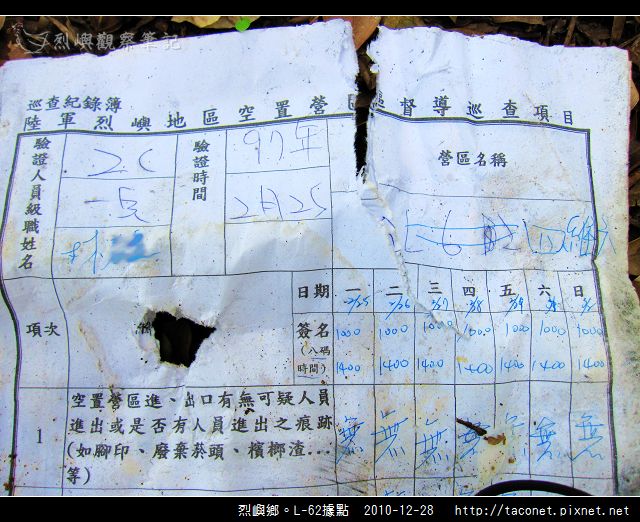 烈嶼觀察筆記
巡查紀錄簿
陸軍烈嶼地區空置營區督導巡查項目
驗證人員級職姓名
2C
一兵
林
驗證時間
97年
2月25
營區名稱
日期 一 二 三 四 五 六 日
2/25 2/26 2/27 2/28 2/29 3/1
項次
簽名
(八碼時間)
1000 1000 1000 1000 1000 1000 1000
1400 1400 1400 1400 1400 1400 1400
1
空置營區進、出口有無可疑人員
進出或是否有人員進出之痕跡
(如腳印、廢棄菸頭、檳榔渣...
等)
無 無 無 無 無 無 無
烈嶼鄉。L-62據點 2010-12-28 http://taconet.pixnet.net